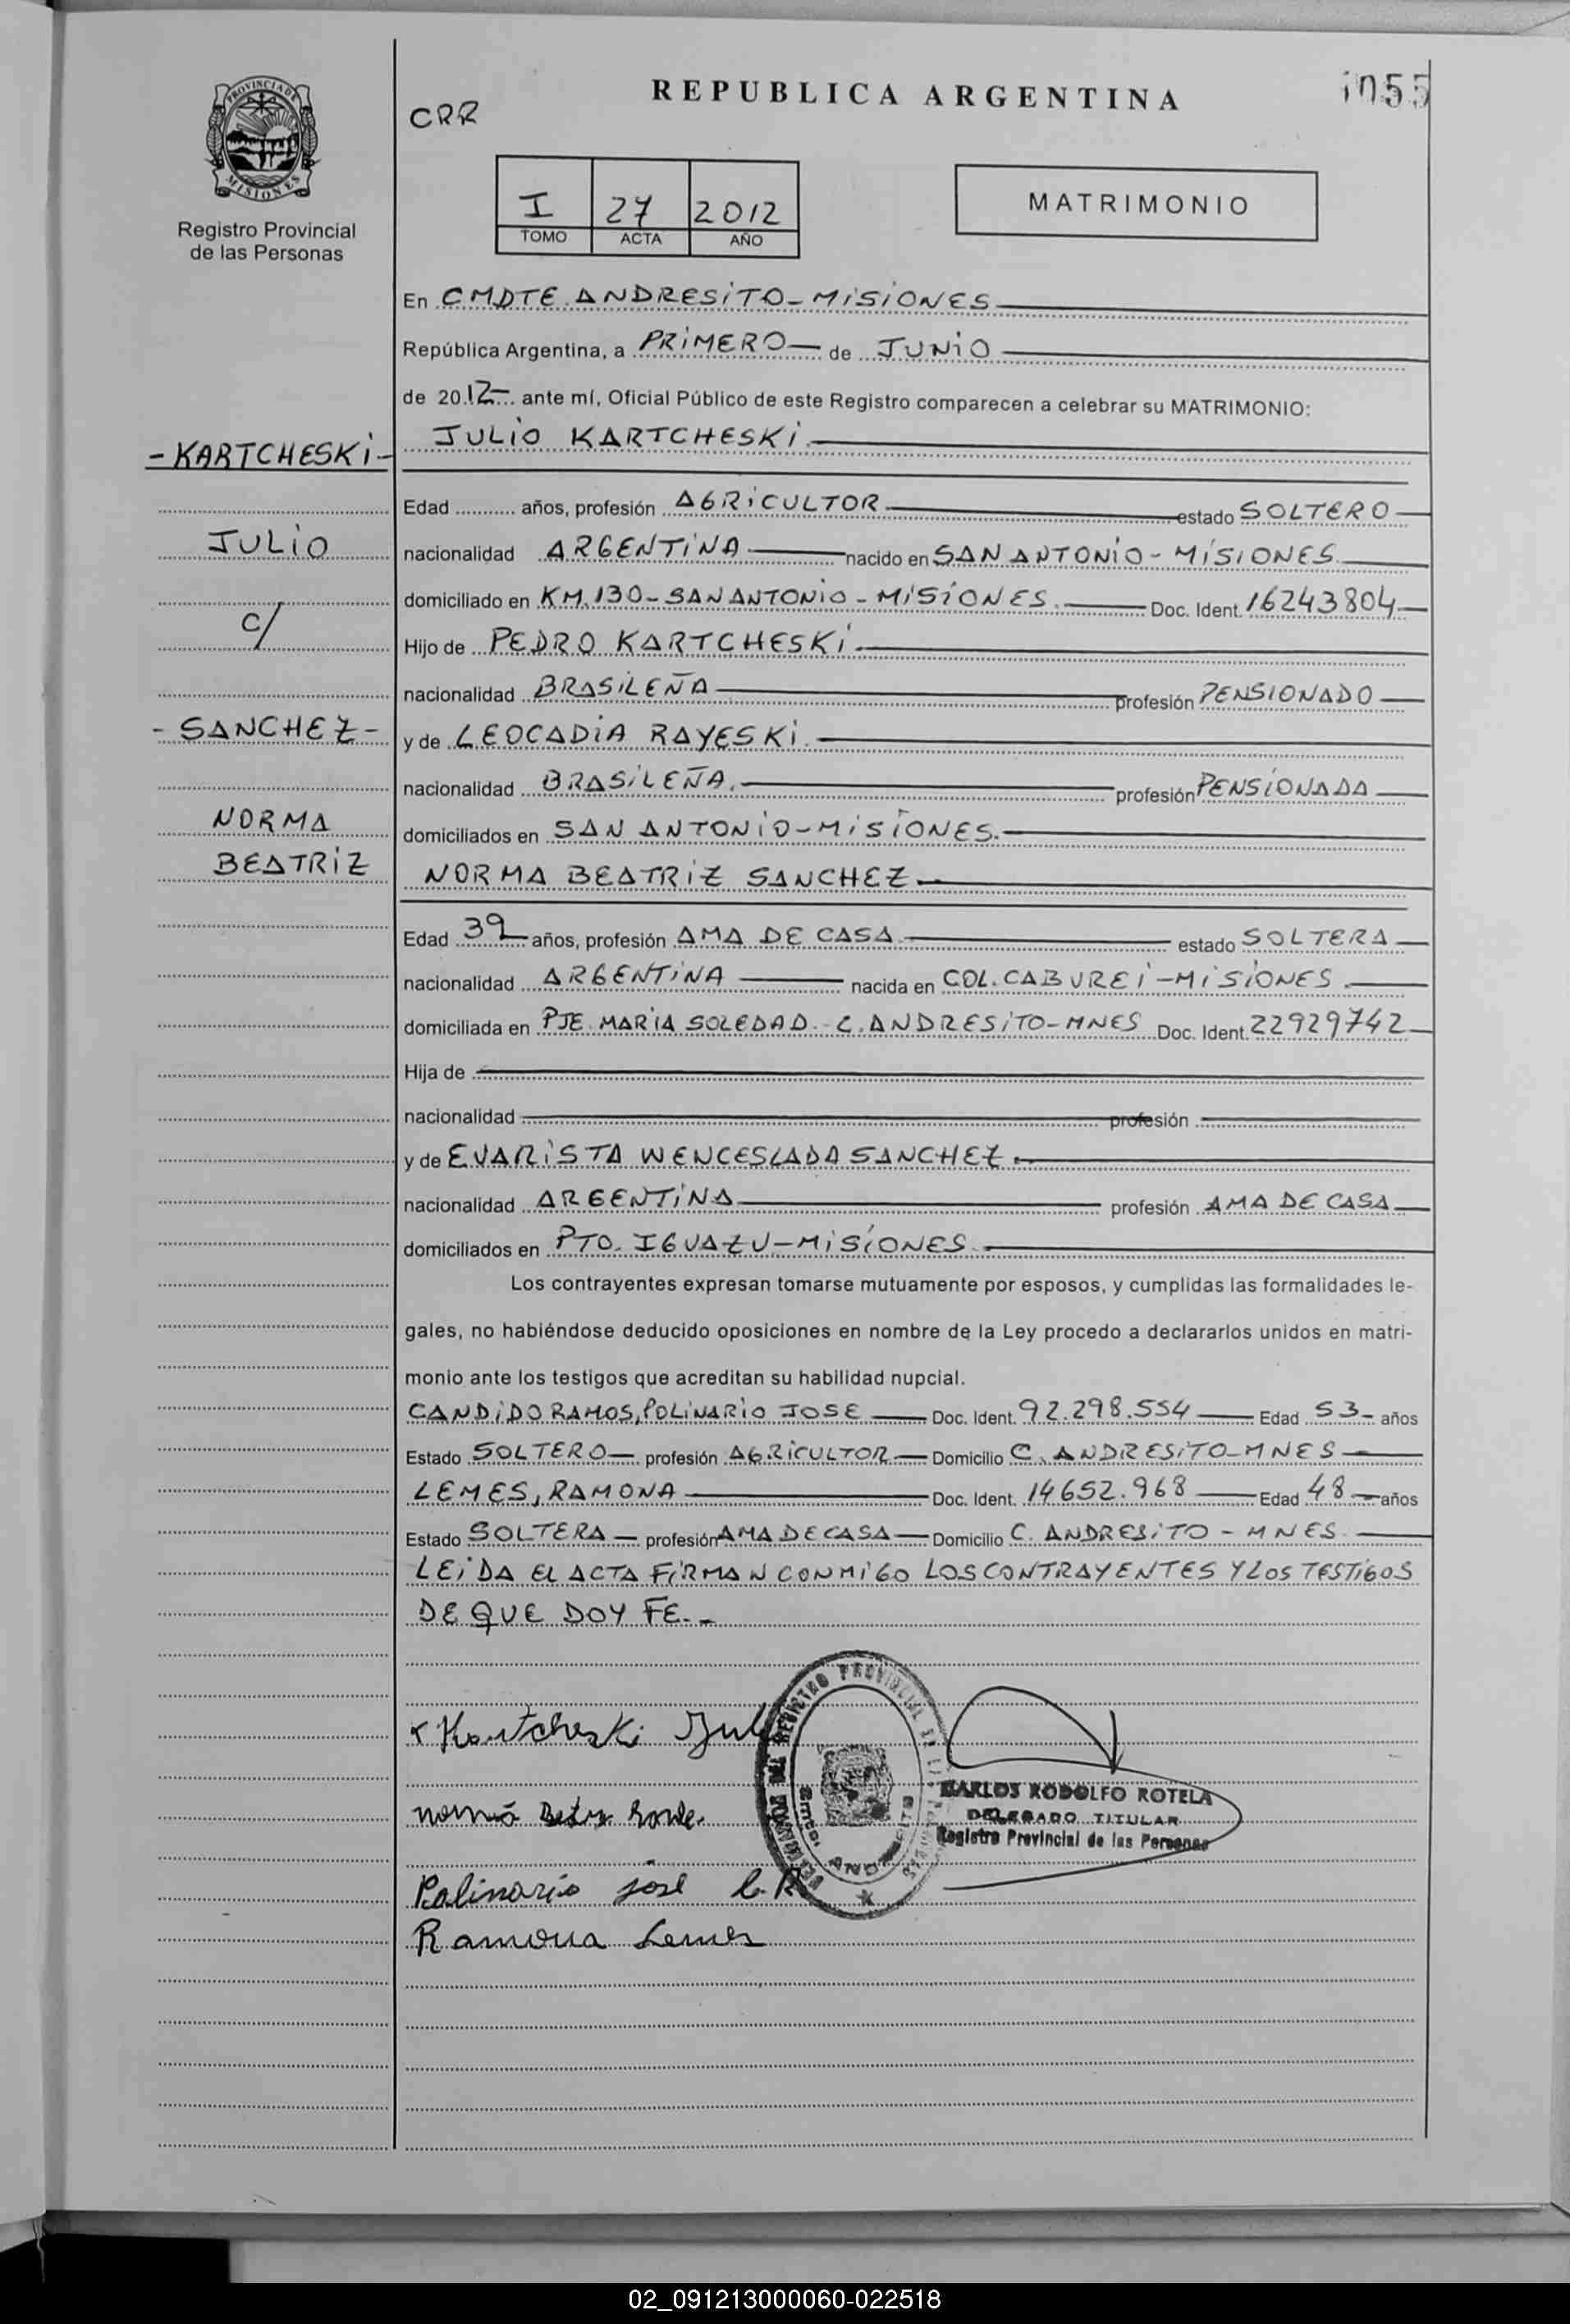 PROVINCIA DE
MISIONES
Registro Provincial
de las Personas
CRR
REPUBLICA ARGENTINA
1055
I 27 2012
TOMO ACTA AÑO
MATRIMONIO
En CMDTE. ANDRESITO - MISIONES
República Argentina, a PRIMERO de JUNIO
de 2012 ante mí, Oficial Público de este Registro comparecen a celebrar su MATRIMONIO:
- KARTCHESKI - JULIO KARTCHESKI
Edad .......... años, profesión AGRICULTOR estado SOLTERO
JULIO nacionalidad ARGENTINA nacido en SAN ANTONIO - MISIONES
domiciliado en KM.130 - SAN ANTONIO - MISIONES. Doc. Ident. 16243804
c/ Hijo de PEDRO KARTCHESKI
nacionalidad BRASILEÑA profesión PENSIONADO
- SANCHEZ - y de LEOCADIA RAYESKI.
nacionalidad BRASILEÑA. profesión PENSIONADA
NORMA domiciliados en SAN ANTONIO - MISIONES.
BEATRIZ NORMA BEATRIZ SANCHEZ
Edad 39 años, profesión AMA DE CASA estado SOLTERA
nacionalidad ARGENTINA nacida en COL. CABUREI - MISIONES
domiciliada en PJE. MARIA SOLEDAD - C. ANDRESITO - MNES Doc. Ident. 22929742
Hija de
nacionalidad profesión
y de EVARISTA WENCESLADA SANCHEZ.
nacionalidad ARGENTINA profesión AMA DE CASA
domiciliados en PTO. IGUAZU - MISIONES
Los contrayentes expresan tomarse mutuamente por esposos, y cumplidas las formalidades le-
gales, no habiéndose deducido oposiciones en nombre de la Ley procedo a declararlos unidos en matri-
monio ante los testigos que acreditan su habilidad nupcial.
CANDIDO RAMOS, POLINARIO JOSE Doc. Ident. 92.298.554 Edad 53 años
Estado SOLTERO profesión AGRICULTOR Domicilio C. ANDRESITO - MNES
LEMES, RAMONA Doc. Ident. 14652.968 Edad 48 años
Estado SOLTERA profesión AMA DE CASA Domicilio C. ANDRESITO - MNES
LEIDA EL ACTA FIRMAN CONMIGO LOS CONTRAYENTES Y LOS TESTIGOS
DE QUE DOY FE.-
Kartcheski Jul
REGISTRO PROVINCIAL DE
CARLOS RODOLFO ROTELA
DELEGADO TITULAR
Registro Provincial de las Personas
Polinario José C.R
Ramona Lemes
02_091213000060-022518